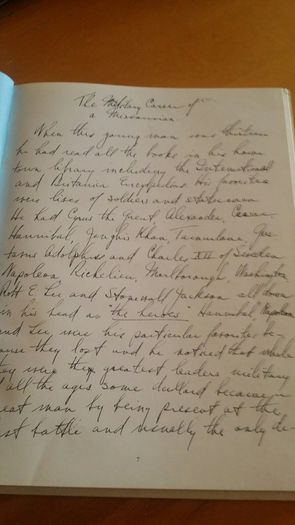 The Military Career of
a Missourian
When this young man was thirteen
he had read all the books in his home
town library including the International
and Britannica Encyclopedias. His favorites
were lives of soldiers and statesmen
He had Cyrus the Great, Alexander, Caesar,
Hannibal, Genghis Khan, Tamerlane, Gus
tavus Adolphus and Charles XII of Sweden
Napoleon Richelieu, Marlborough, Washington
Robt E. Lee and Stonewall Jackson all down
in his head as "the heroes". Hannibal Napoleon
and Lee, were his particular favorites be-
cause they lost and he noticed that while
they were the greatest leaders military
of all the ages some dullard became a
great man by being present at the
last battle and usually the only de-